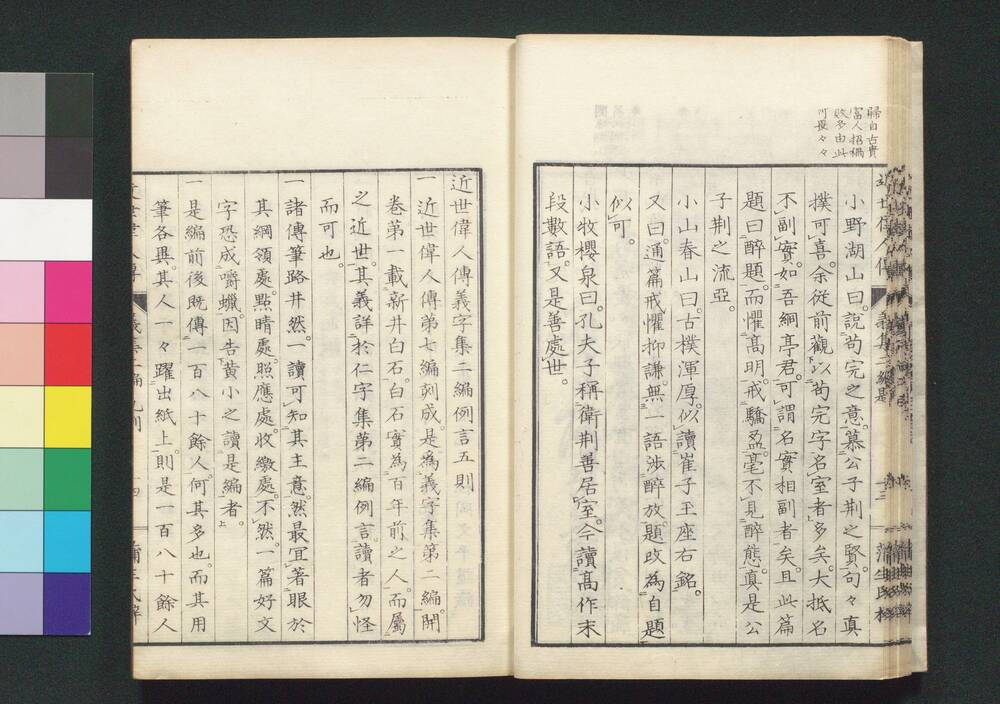 歸自古貴
富人招禍
敗多由此
可畏々々
小野湖山曰。説苟完之意。慕公子荆之賢。句々真
撲可喜。余從前觀以苟完字名室者多矣。大抵名
不副實。如吾綱亭君。可謂名實相副者矣。且此篇
題曰醉題。而懼高明。戒驕盈。毫不見醉態。真是公
子荆之流亞。
小山春山曰。古樸渾厚。似讀崔子玉座右銘。
又曰。通篇戒懼抑謙。無一語涉醉放。題改為自題
似可。
小牧櫻泉曰。孔夫子稱衛荆善居室。今讀高作末
段數語。又是善處世。
近世偉人傳義字集二編例言五則
一近世偉人傳第七編刻成。是為義字集第二編。開
卷第一載新井白石。白石實為百年前之人。而屬
之近世。其義詳於仁字集第二編例言。讀者勿怪
而可也。
一諸傳筆路井然。一讀可知其主意。然最宜著眼於
其綱領處。點睛處。照應處。收繳處。不然。一篇好文
字恐成嚼蠟。因告黄小之讀是編者。
一是編前後既傳一百八十餘人。何其多也。而其用
筆各異。其人一々躍出紙上。則是一百八十餘人